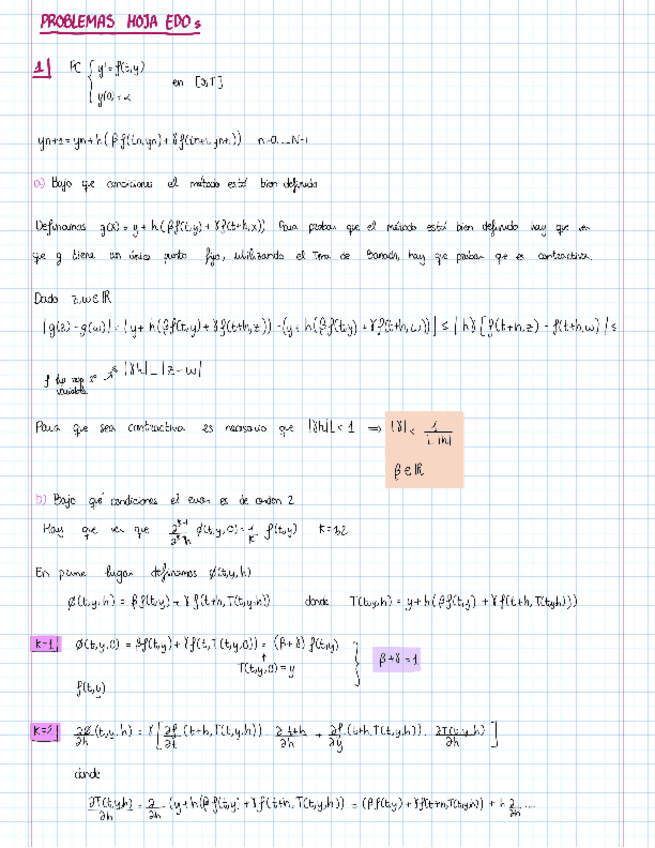 PROBLEMAS HOJA EDOs
1| PC { y' = f(t,y)
y(0) = α
en [0,T]
yn+1 = yn + h (β f(tn,yn) + γ f(tn+1, yn+1)) n=0...N-1
a) Bajo que condiciones el método está bien definido
Definamos g(x) = y + h(β f(t,y) + γ f(t+h,x)) Para probar que el método está bien definido hay que ver
que g tiene un único punto fijo, utilizando el Tma de Banach, hay que probar que es contractiva.
Dado z,w ∈ ℝ
|g(z) - g(w)| = |y + h(β f(t,y) + γ f(t+h,z)) - (y + h(β f(t,y) + γ f(t+h,w))| ≤ |hγ [f(t+h,z) - f(t+h,w)| ≤
≤ |γh| L |z - w|
f lip resp 2º
variable
Para que sea contractiva es necesario que |γh|L < 1 ⇒ |γ| < 1 / L|h|
β ∈ ℝ
b) Bajo qué condiciones el error es de orden 2
Hay que ver que ∂^k-1/∂^k h φ(t,y,0) = 1/k f(t,y) k=1,2
En primer lugar definamos φ(t,y,h)
φ(t,y,h) = β f(t,y) + γ f(t+h, T(t,y,h)) donde T(t,y,h) = y + h(β f(t,y) + γ f(t+h, T(t,y,h)))
k=1| φ(t,y,0) = β f(t,y) + γ f(t, T(t,y,0)) = (β+γ) f(t,y)
↑
T(t,y,0) = y
β+γ = 1
f(t,y)
k=2| ∂φ/∂h (t,y,h) = γ [∂f/∂t (t+h, T(t,y,h)) ∂ t+h/∂h + ∂f/∂y (t+h, T(t,y,h)) · ∂T(t,y,h)/∂h]
donde
∂T(t,y,h)/∂h = ∂/∂h (y + h(β f(t,y) + γ f(t+h, T(t,y,h))) = (β f(t,y) + γ f(t+h, T(t,y,h))) + h ∂/∂h ...